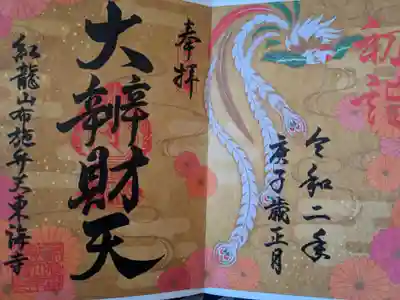 初詣
令和二年
庚子歳正月
奉拝
大辨財天
紅龍山布施弁天東海寺